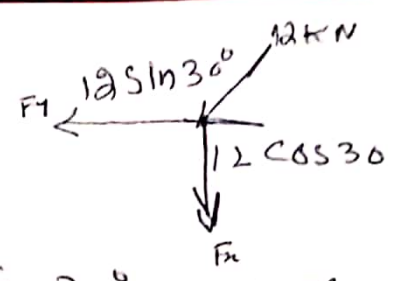 12KN
12Sin30°
Fy
12 COS30
Fx